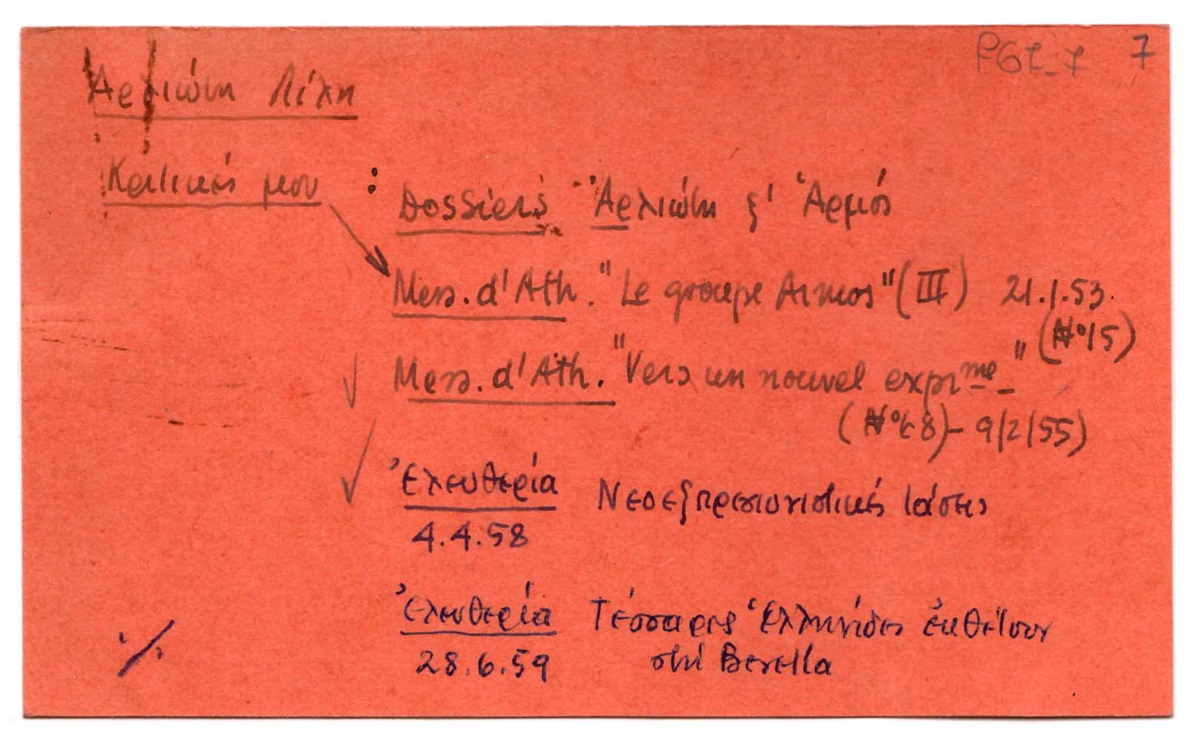 PGL_7 7
Αρλιώτη Λίλη
Κριτικές μου : Dossiers Ἀρλιώτη & Ἁρμός
Mess. d'Ath. "Le groupe Armos" (III) 21.1.53.
(N°15)
Mess. d'Ath. "Vers un nouvel exprme"
(N°68) - 9/2/55)
Ἐλευθερία Νεοεξπρεσιονιστικές τάσεις
4.4.58
Ἐλευθερία Τέσσαρες Ἑλληνίδες ἐκθέτουν
28.6.59 στή Berella
./.